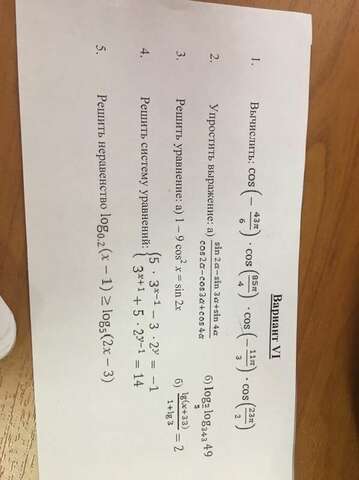 Вариант VI
1. Вычислить: cos(−43π/6) · cos(85π/4) · cos(−11π/3) · cos(23π/2)
2. Упростить выражение: а) (sin 2α−sin 3α+sin 4α)/(cos 2α−cos 3α+cos 4α) б) log₂ log₃₄₃ 49
3. Решить уравнение: а) 1 − 9 cos² x = sin 2x б) lg(x+33)/(1+lg 3) = 2
4. Решить систему уравнений: {5 · 3ˣ⁻¹ − 3 · 2ʸ = −1
3ˣ⁺¹ + 5 · 2ʸ⁻¹ = 14
5. Решить неравенство log₀.₂(x − 1) ≥ log₅(2x − 3)